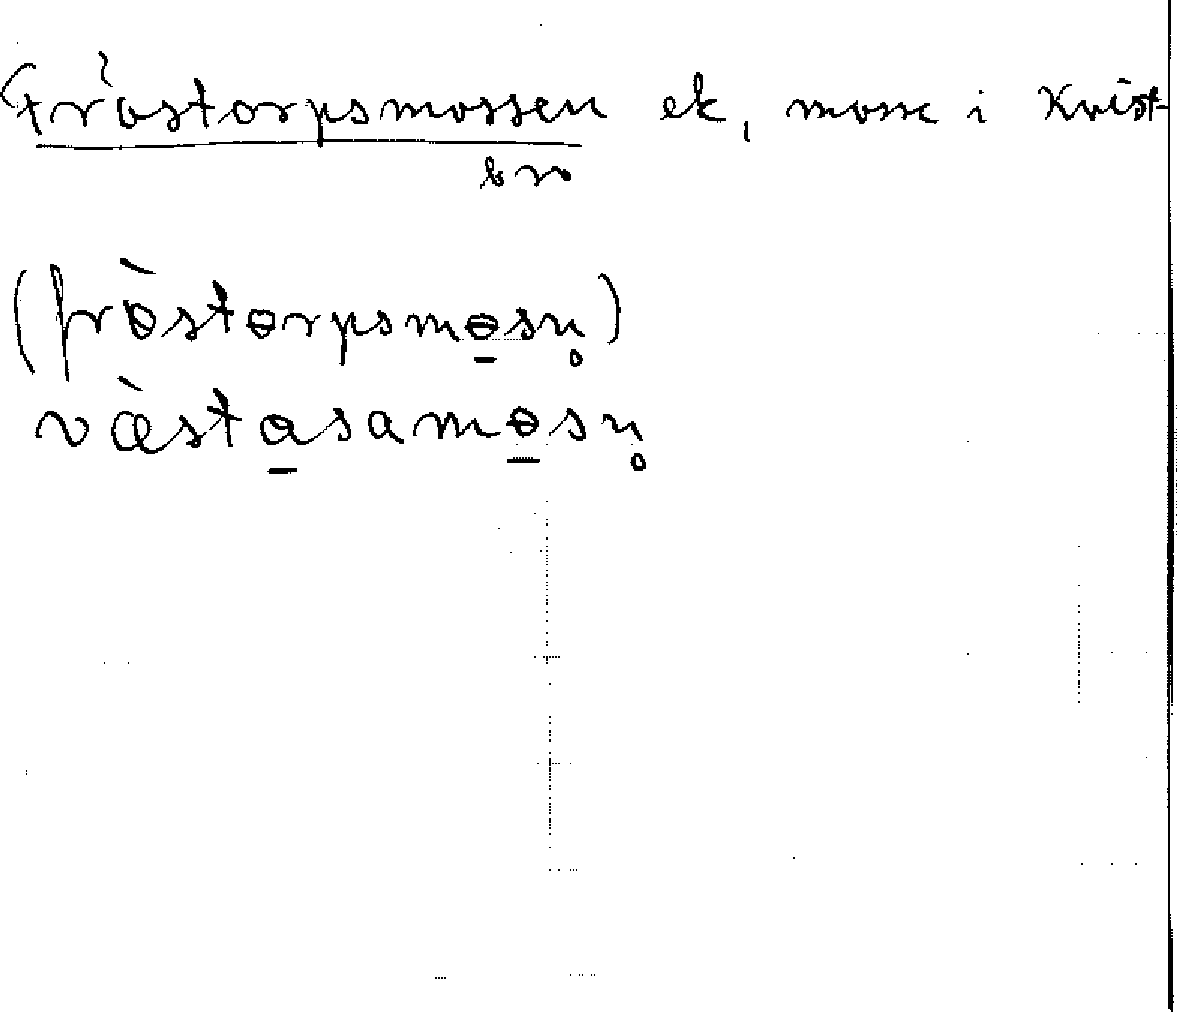 Fròstorpsmossen ek, mosse i Kvist-
bro
(frɵ̀stɵrpsmɵ̲sn̥)
væ̀sta̲samɵ̲sn̥